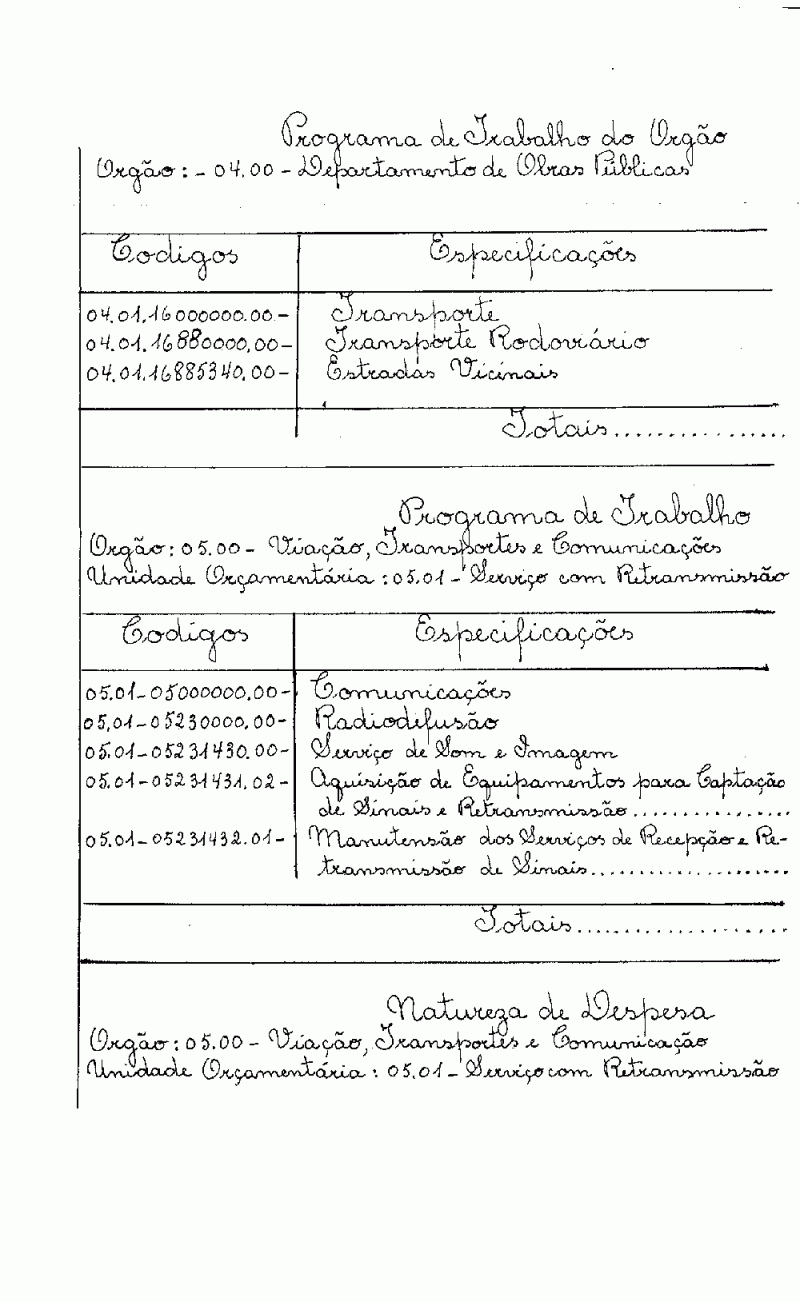 Programa de Trabalho do Orgão
Orgão: - 04.00 - Departamento de Obras Públicas
Codigos Especificações
04.01.16000000.00- Transporte
04.01.16880000,00- Transporte Rodoviário
04.01.16885340.00- Estradas Vicinais
Totais.................
Programa de Trabalho
Orgão: 05.00 - Viação, Transportes e Comunicações
Unidade Orçamentária: 05.01 - Serviço com Retransmissão
Codigos Especificações
05.01-05000000.00- Comunicações
05.01-05230000.00- Radiodifusão
05.01-05231430.00- Serviço de Som e Imagem
05.01-05231431.02- Aquisição de Equipamentos para Captação
de Sinais e Retransmissão................
05.01-05231432.01- Manutensão dos Serviços de Recepção e Re-
transmissão de Sinais....................
Totais.....................
Natureza de Despesa
Orgão: 05.00 - Viação, Transportes e Comunicação
Unidade Orçamentária: 05.01 - Serviço com Retransmissão